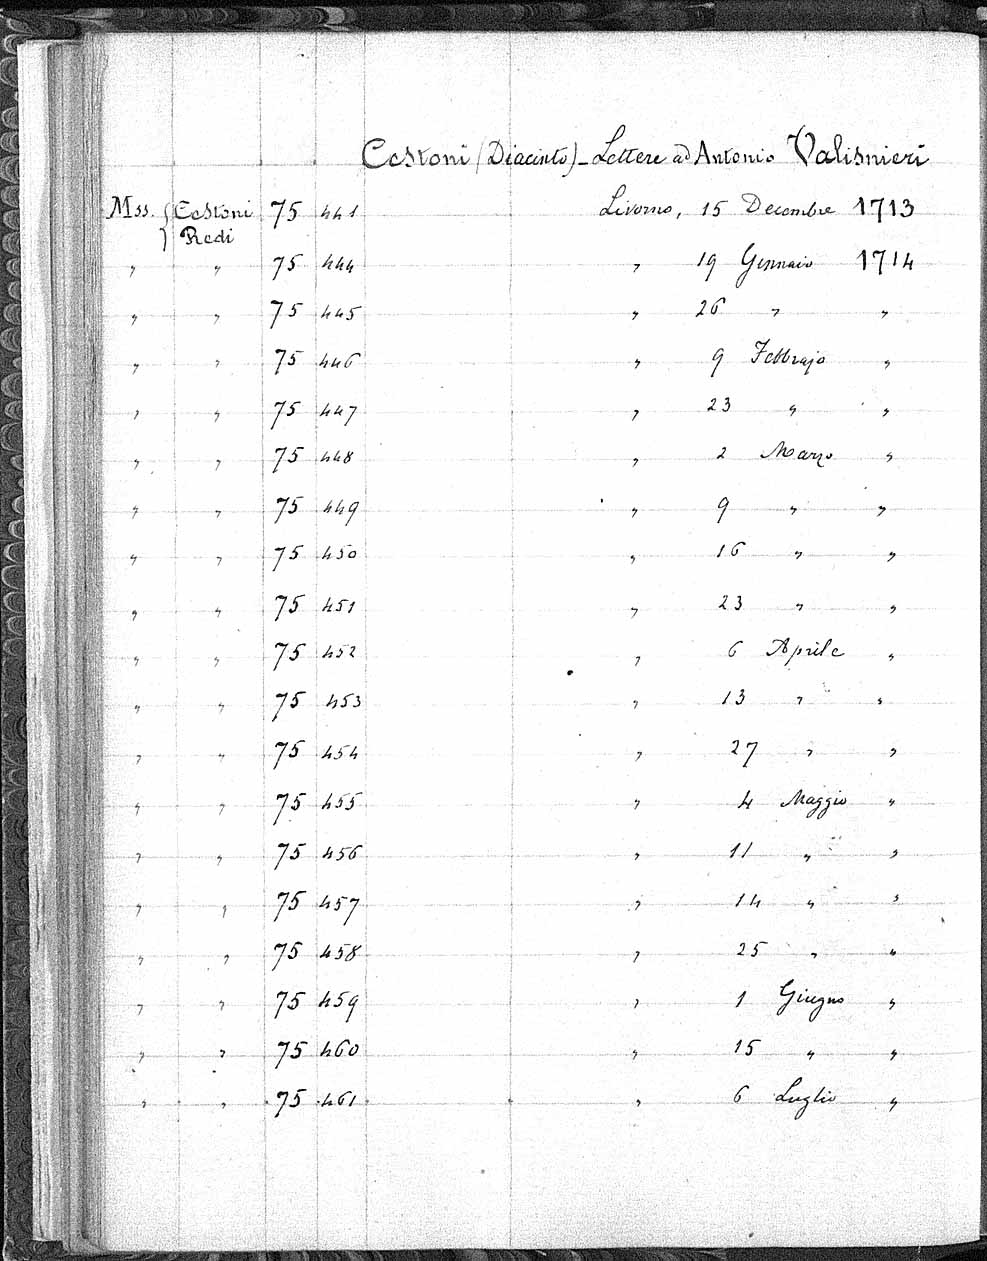 Cestoni (Diacinto) - Lettere ad Antonio Valisnieri
Mss. { Cestoni 75 441 Livorno, 15 Decembre 1713
Redi
" " 75 444 " 19 Gennaio 1714
" " 75 445 " 26 " "
" " 75 446 " 9 Febbrajo "
" " 75 447 " 23 " "
" " 75 448 " 2 Marzo "
" " 75 449 " 9 " "
" " 75 450 " 16 " "
" " 75 451 " 23 " "
" " 75 452 " 6 Aprile "
" " 75 453 " 13 " "
" " 75 454 " 27 " "
" " 75 455 " 4 Maggio "
" " 75 456 " 11 " "
" " 75 457 " 14 " "
" " 75 458 " 25 " "
" " 75 459 " 1 Giugno "
" " 75 460 " 15 " "
" " 75 461 " 6 Luglio "